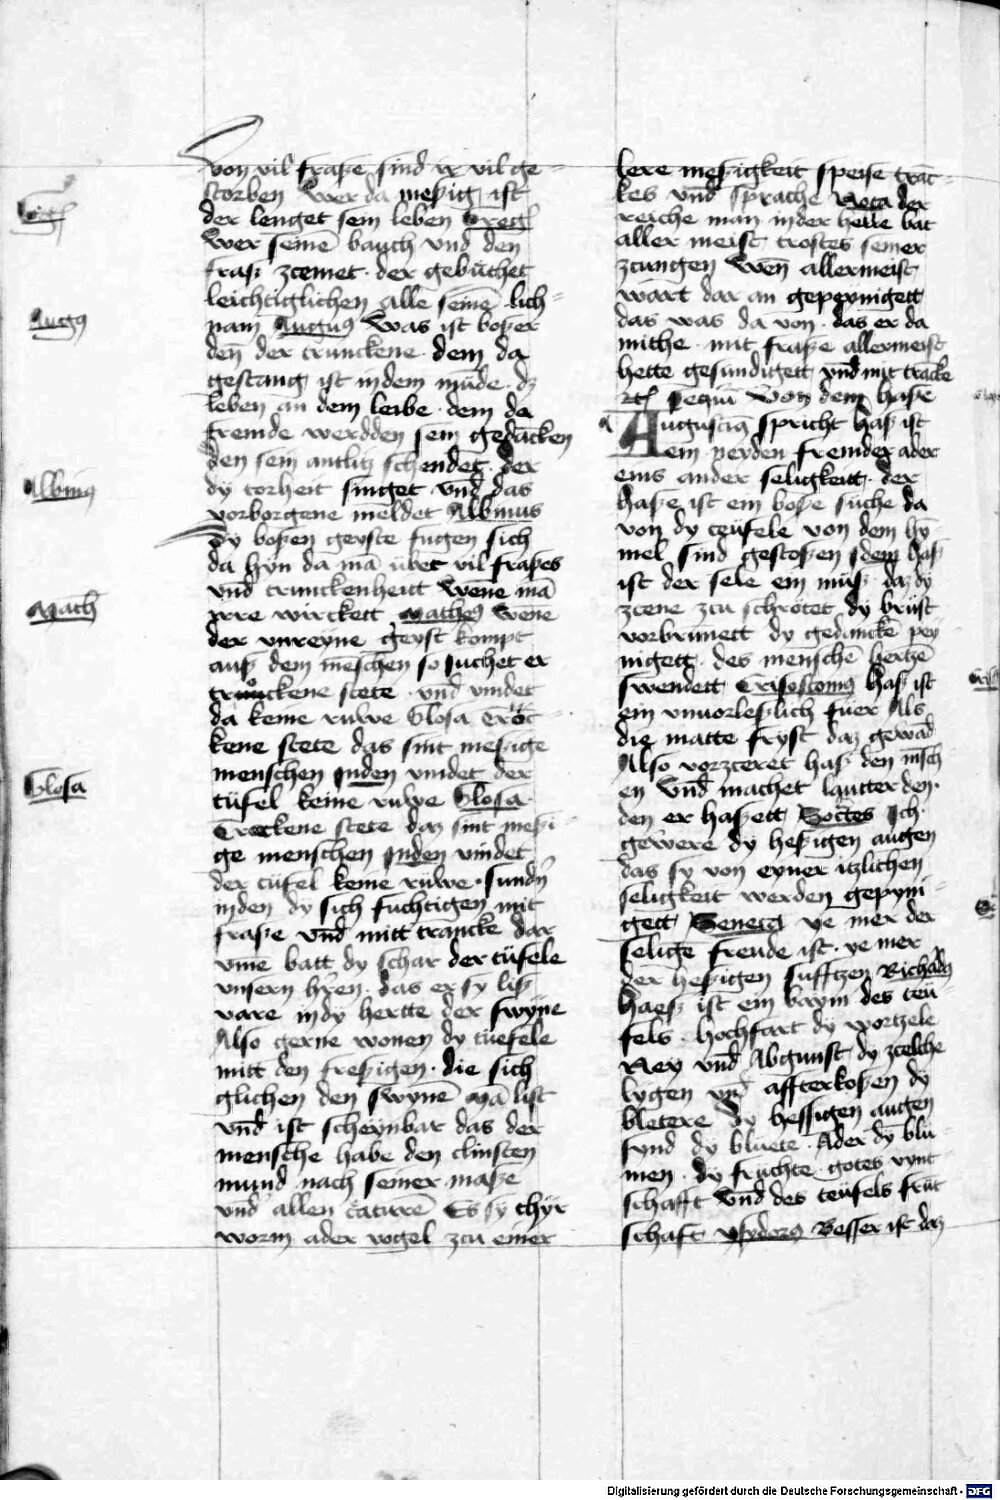 von vil fraße sind ir vil ge=
storben Wer da meßig ist
der lenget sein leben Greg
Wer seinē bauch vnd den
fraß zcemet · der gebuthet
leichtiglichen alle seinē lich=
nam Augus Was ist boßer
den der trunckene · dem da
gestang ist in dem mūde · dz
leben an dem leibe · dem da
fremde werdden sein gedācken
den sein antlitz schendet · der
dy torheit singet vnd das
vorborgene meldet Albinus
Dy boßen geyste fugen sich
da hyn da mā übet vil fraßes
vnd trunckenheitt Wēne mā
irre wirckett Matheꝯ Wēne
der vnreyne geyst kompt
auß dem mēschen so suchet er
truckene stete · vnd vindet
da keine ruwe Glosa Trōc=
kene stete das sint meßige
menschen inden vindet der
tüfel keine ruwe Glosa
Treckene stete daz sint meßi=
ge menschen inden vindet
der tüfel keine ruwe · sundn
inden dy sich fuchtigen mit
fraße vnd mitt trancke dar
vme batt dy schar der tüfele
vnsern hren · das er sy liß
vare in dy hertte der swyne
Also gerne wonen dy tüefele
mitt den freßigen · die sich
glichen den swynē Mā list
vnd ist scheynbar das der
mensche habe den clinsten
mund nach seiner maße
vnd allen catturē Es sy thyr
worm ader vogel zcu einer
Greg
Augꝯ
Albinꝯ
Math
Glosa
lere meßigkeit speise trāc=
kes vnd sprache Beca der
reiche man in der helle bat
aller meist trostes seiner
zcungen Wen allermeist
wart dar an gepeynigett
das was da von · das er da
mithe · mit fraße allermeist
hette gesundigett vnd mit tracke
Von dem haße
Augustinꝯ spricht haß ist
ein neyden fremder ader
eins ander seligkeit · der
haße ist ein boße suche da
von dy teüfele von dem hy=
mel sind gestoßen Idem haß
ist der sele ein müß daz dy
zcene zcu schrotet dy brust
vorbrinnett dy gedanckē pey=
nigett · des menschē hertze
swendett Crisostomꝯ haß ist
ein vnuorleßlich fuer Als
die matte fryst daz gewād
Also vorzceret haß den mēsch
en vnd machet lautter den ·
den er haßett Socrates Ich
gewere dy heßigen augen
das sy von eyner itzlichen
seligkeit werden gepyni=
gett Seneca ye mer der
selige freude ist · ye mer
der heßigen sufftzen Richardꝯ
Haeß ist ein baym des teü=
fels · hochfart dy wortzele
Ney vnd Abgunst dy zcelche
lygen vnd affterkoßen dy
bletere dy hessigen augen
synd dy bluete · Ader dy blü=
men · dy fruchte · gotes vynt=
schafft vnd des teüfels frūt=
schaft Ysydorꝯ Besser ist daz